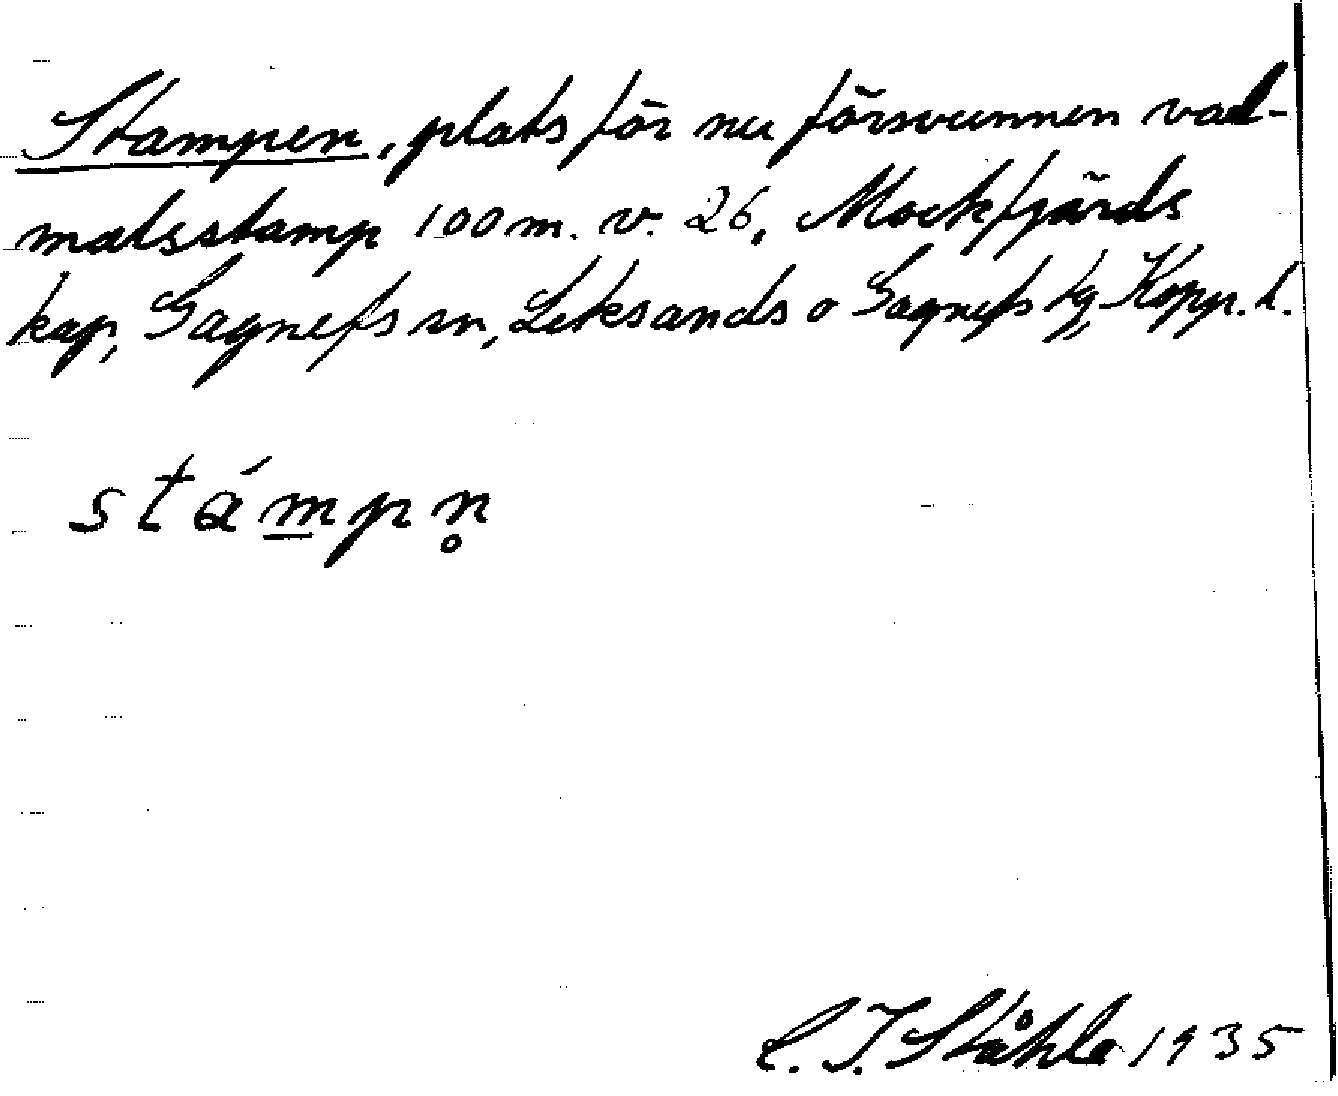 Stampen, plats för nu försvunnen vad-
malsstamp 100 m. v. 26, Mockfjärds
kap, Gagnefs sn, Leksands o Gagnefs tg, Kopp. l.
stámpn̥
C. I. Ståhle 1935